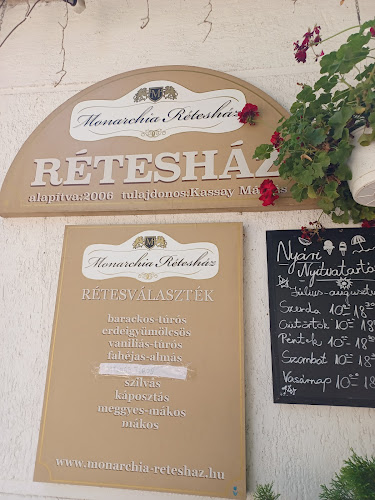 Monarchia Rétesház
RÉTESHÁZ
alapítva:2006 tulajdonos:Kassay
Monarchia Rétesház
RÉTESVÁLASZTÉK
barackos-túrós
erdeigyümölcsös
vaniliás-túrós
fahéjas-almás
szilvás
káposztás
meggyes-mákos
mákos
www.monarchia-reteshaz.hu
Nyári
Nyitvatartá
Július-augusztu
Szerda 10⁰⁰ 18
Csütörtök 10⁰⁰ 18
Péntek 10⁰⁰ 18
Szombat 10⁰⁰ 18
Vasárnap 10⁰⁰ 18